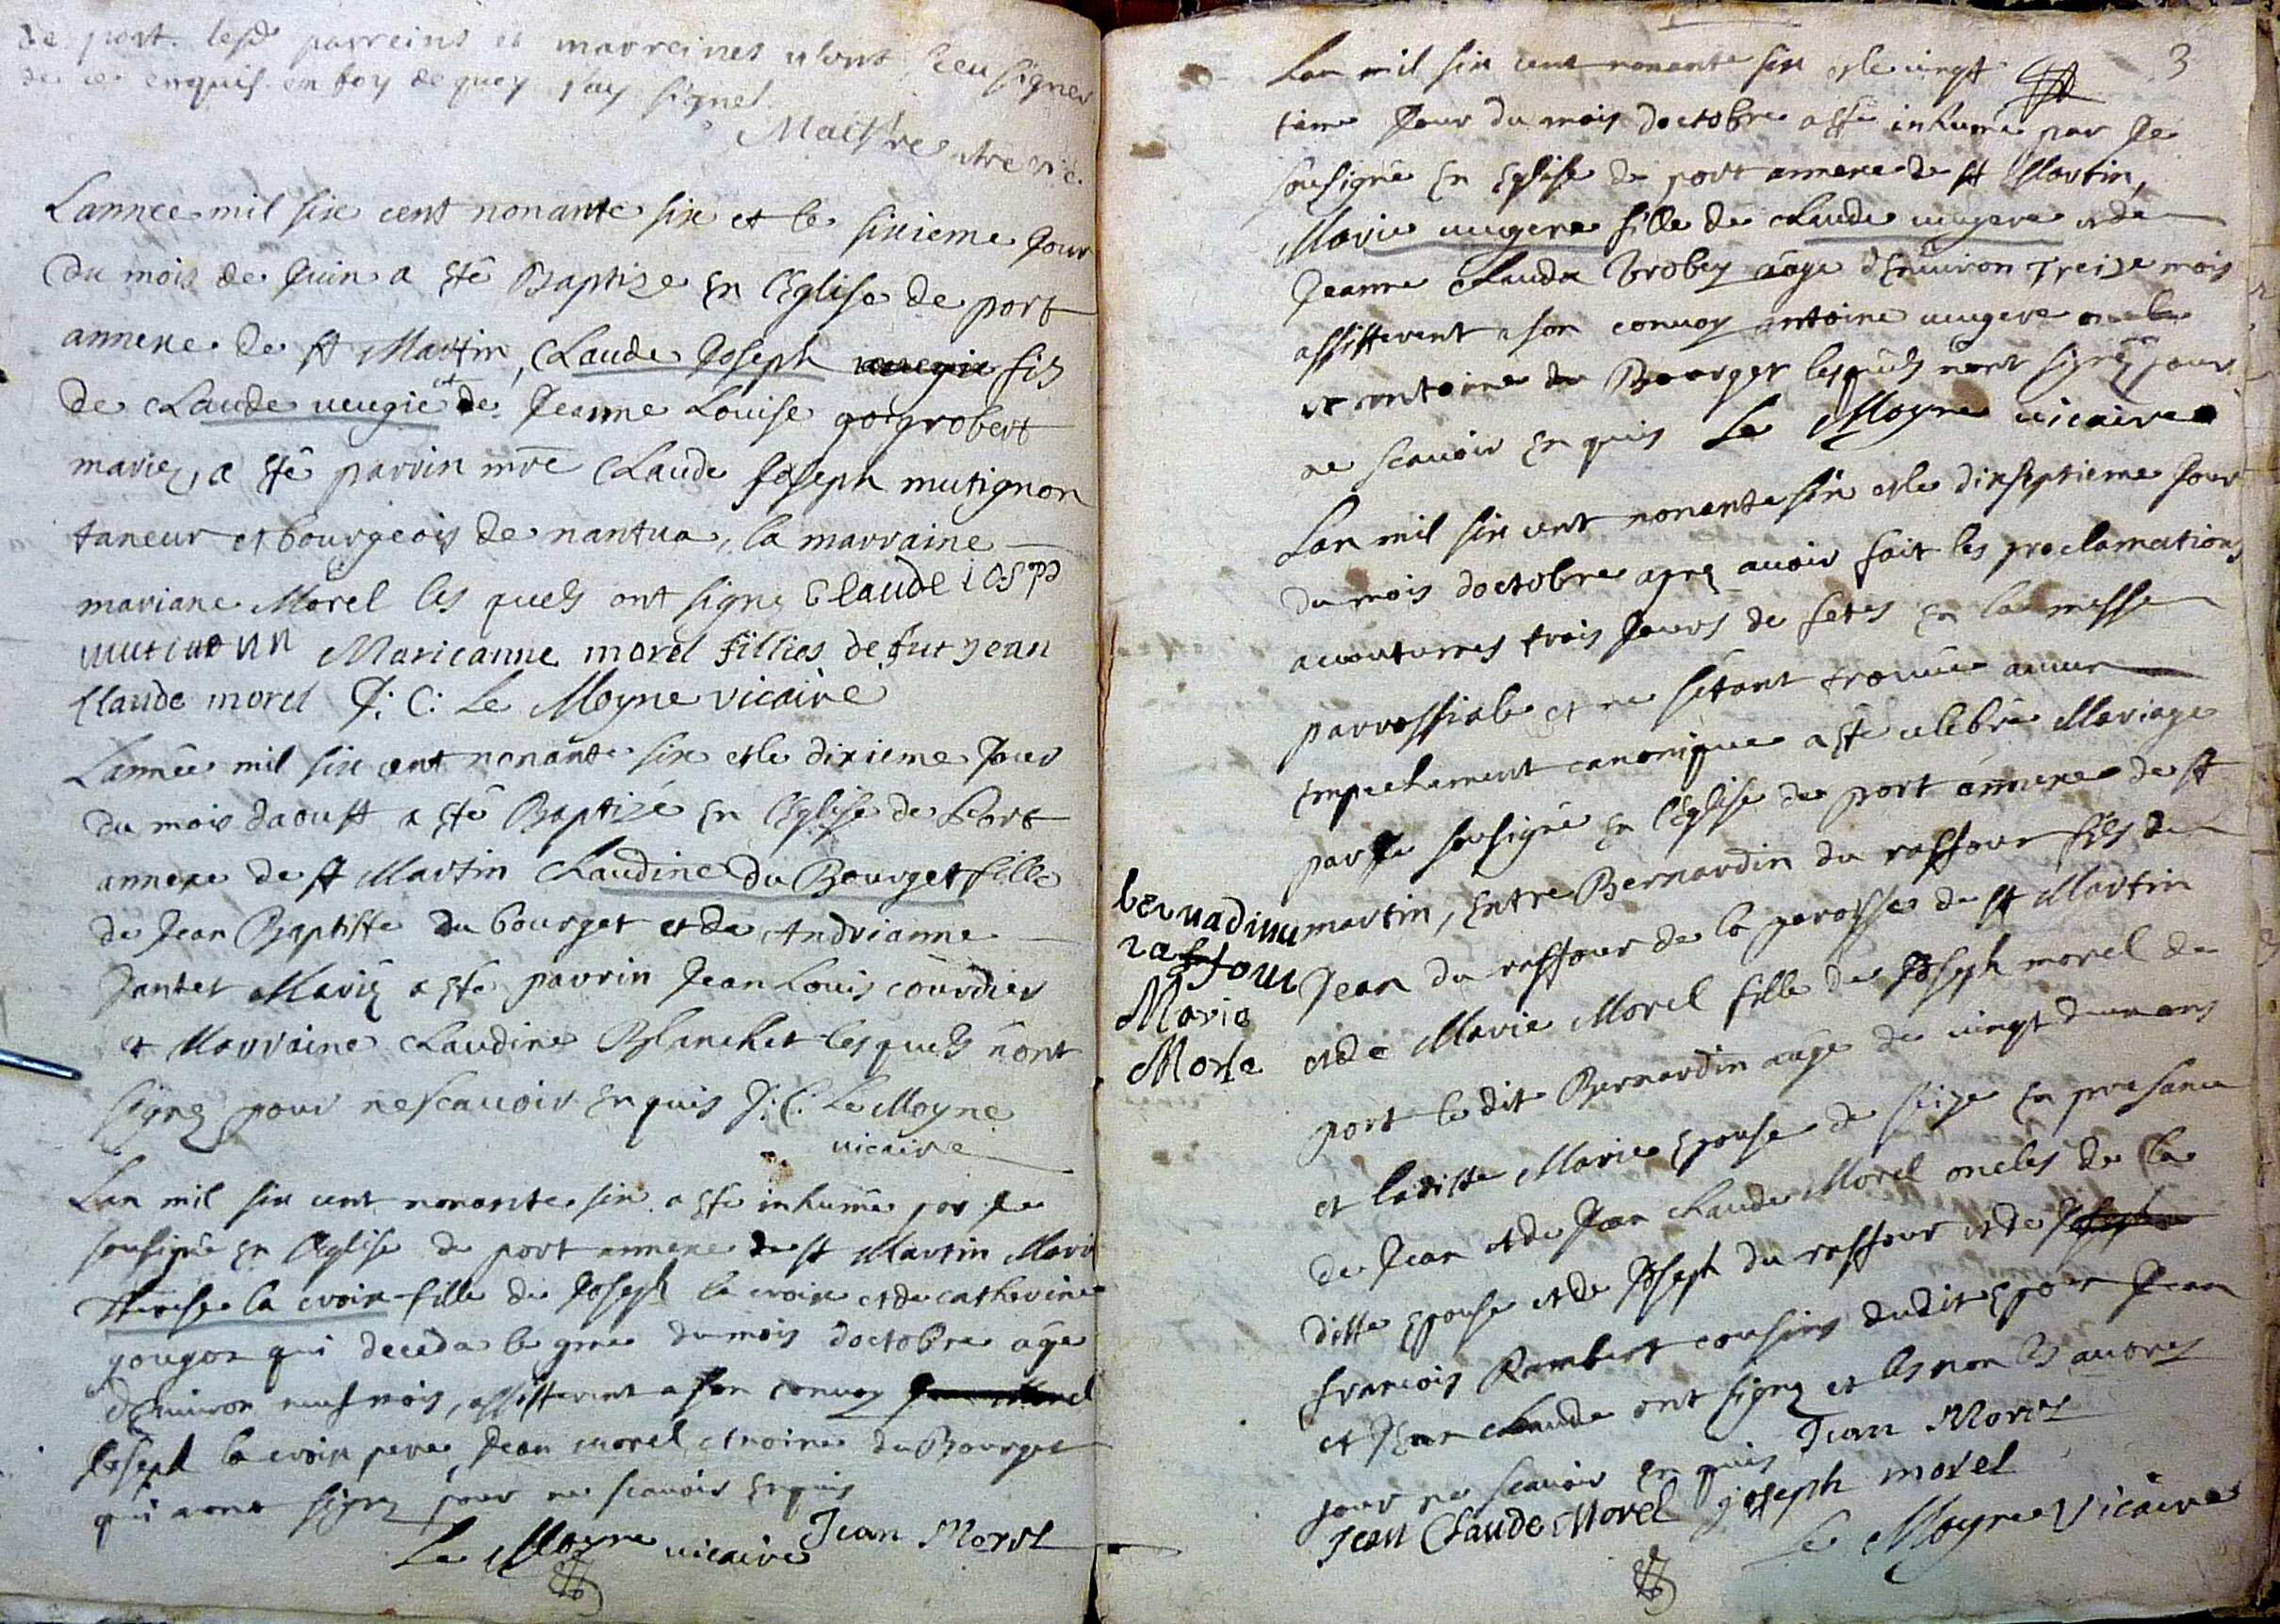 de port. lesd parreins et marreines n'ont sceu signer
de ce enquis en foy de quoy j'ay signé
Maistre vic.
Lannee mil six cent nonante six et le sixieme Jour
Du mois de Juin a esté Baptize En l'Eglise de port
annexe de st Martin, Claude Joseph fils
de Claude uugie et de Jeanne Louise goigrobert
mariez, a esté parrin mre Claude Joseph mutignon
taneur et bourgeois de nantua, la marraine
mariane Morel les quels ont signe Claude iosp
Maricanne morel fillies de fut jean
Claude morel J: C: Le Moyne vicaire
Lannée mil six cent nonante six et le dixieme Jour
du mois daoust a esté Baptizé En l'Eglise de Port
annexe de st Martin Claudine du Bourget fille
de Jean Baptiste du bourget et de Andrianne
Jantet Mariez a esté parrin Jean Louis courdier
et Marraine Claudine Blanchet lesquels n'ont
signez pour ne scauoir Enquis J: C: Le Moyne
uicaire
Lan mil six cent nonante six a esté inhumé par Je
sousigné En l'Eglise de port annexe de st Martin Mari
Therese la croix fille de Joseph la croix et de catherine
gougon qui deceda le du mois doctobre age
d'Enuiron neuf mois, assisterent a son conuoy Jean Morel
Joseph la croix pere, Jean morel, Antoine du Bourget
qui nont signez pour ne scauoir Enquis
Le Moyne uicaire Jean Morel
3
Lan mil six cent nonante six et le uingt
tieme Jour du mois doctobre a esté inhumé par Je
sousigné En Eglise de port annexe de st Martin,
Marie uugere fille de Claude uugere et de
Jeanne Clauda Brobey aage d'Enuiron Treize mois
assisterent a son conuoy antoine uugere oncle
et antoine du Bourget lesquels n'ont signez pour
ne scauoir Enquis Le Moyne uicaire
Lan mil six cent nonante six et le dixseptieme Jour
du mois doctobre aprez auoir fait les proclamations
acoutumes trois Jours de fetes En la messe
parrossiale et ne s'étant trouuée aucun
Empechement canonique a esté celebré Mariage
par Je sousigné En l'Eglise de port annexe de st
martin, Entre Bernardin du raffour fils de
Jean du raffour de la paroisse de st Martin
et de Marie Morel fille de Joseph morel de
port le dit Bernardin aage de uingt deux ans
et laditte Marie Epouse de seize En presance
de Jean et de Jean Claude Morel oncles de la
ditte Epouse et de Joseph du raffour et de Joseph
francois Rambert cousins dudit Epoux Jean
et Jean Claude ont signez et les non les autres
pour ne scauoir Enquis Jean Morel
Jean Claude Morel joseph morel
Le Moyne Vicaire
bernadinu
raffour
Marie
Morle